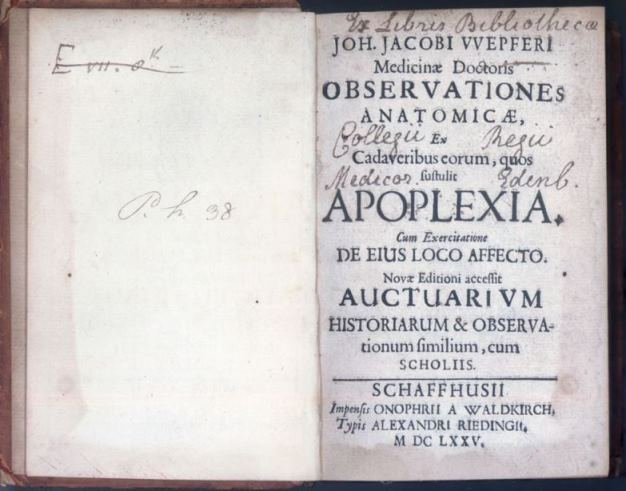 E VII. 8k
P. h. 38
Ex Libris Bibliothecæ
JOH. JACOBI VVEPFERI
Medicinæ Doctoris
OBSERVATIONES
ANATOMICÆ,
Collegii Ex Regii
Cadaveribus eorum, quos
sustulit
Medicor. Edenb.
APOPLEXIA.
Cum Exercitatione
DE EIUS LOCO AFFECTO.
Novæ Editioni accessit
AUCTUARIVM
HISTORIARUM & OBSERVA-
tionum similium, cum
SCHOLIIS.
SCHAFFHUSII
Impensis ONOPHRII A WALDKIRCH,
Typis ALEXANDRI RIEDINGII,
M DC LXXV.